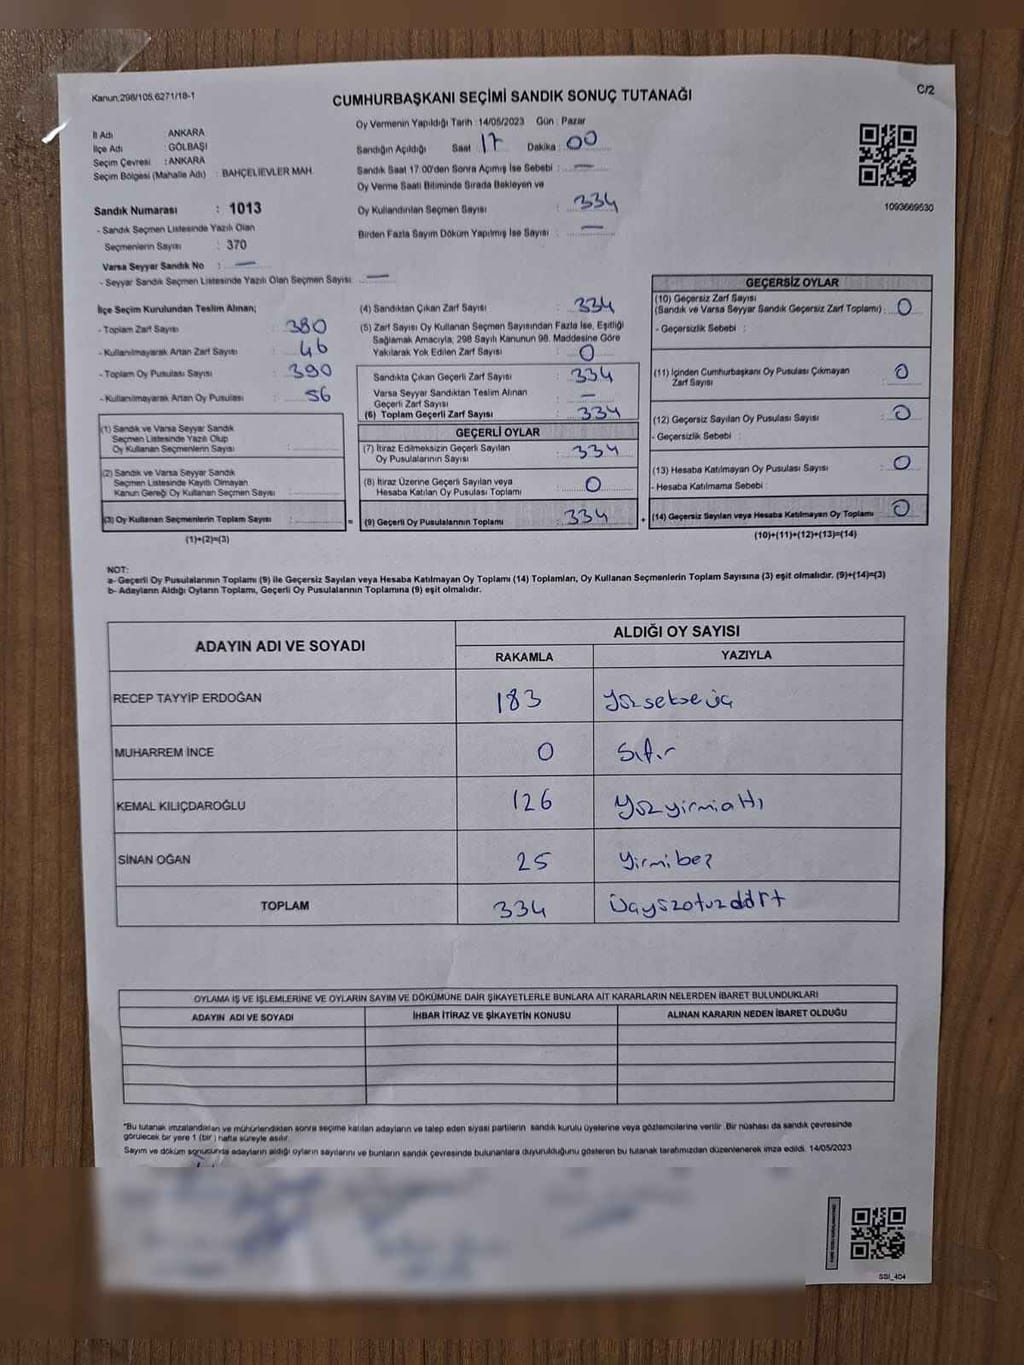 Kanun:298/105,6271/18-1
C/2
CUMHURBAŞKANI SEÇİMİ SANDIK SONUÇ TUTANAĞI
Oy Vermenin Yapıldığı Tarih : 14/05/2023 Gün : Pazar
İl Adı : ANKARA
İlçe Adı : GÖLBAŞI
Seçim Çevresi : ANKARA
Seçim Bölgesi (Mahalle Adı) : BAHÇELİEVLER MAH.
Sandık Numarası : 1013
- Sandık Seçmen Listesinde Yazılı Olan
Seçmenlerin Sayısı : 370
Varsa Seyyar Sandık No : —
- Seyyar Sandık Seçmen Listesinde Yazılı Olan Seçmen Sayısı: —
Sandığın Açıldığı Saat 17 Dakika : 00
Sandık Saat 17.00'den Sonra Açımış İse Sebebi : —
Oy Verme Saati Bitiminde Sırada Bekleyen ve
Oy Kullandırılan Seçmen Sayısı : 334
Birden Fazla Sayım Döküm Yapılmış İse Sayısı : —
1093669530
İlçe Seçim Kurulundan Teslim Alınan;
- Toplam Zarf Sayısı : 380
- Kullanılmayarak Artan Zarf Sayısı : 46
- Toplam Oy Pusulası Sayısı : 390
- Kullanılmayarak Artan Oy Pusulası : 56
(1) Sandık ve Varsa Seyyar Sandık
Seçmen Listesinde Yazılı Olup
Oy Kullanan Seçmenlerin Sayısı :
(2) Sandık ve Varsa Seyyar Sandık
Seçmen Listesinde Kayıtlı Olmayan
Kanun Gereği Oy Kullanan Seçmen Sayısı :
(3) Oy Kullanan Seçmenlerin Toplam Sayısı :
(1)+(2)=(3)
=
(4) Sandıktan Çıkan Zarf Sayısı : 334
(5) Zarf Sayısı Oy Kullanan Seçmen Sayısından Fazla İse, Eşitliği
Sağlamak Amacıyla; 298 Sayılı Kanunun 98. Maddesine Göre
Yakılarak Yok Edilen Zarf Sayısı : 0
Sandıkta Çıkan Geçerli Zarf Sayısı : 334
Varsa Seyyar Sandıktan Teslim Alınan
Geçerli Zarf Sayısı : —
(6) Toplam Geçerli Zarf Sayısı : 334
GEÇERLİ OYLAR
(7) İtiraz Edilmeksizin Geçerli Sayılan
Oy Pusulalarının Sayısı : 334
(8) İtiraz Üzerine Geçerli Sayılan veya
Hesaba Katılan Oy Pusulası Toplamı : 0
(9) Geçerli Oy Pusulalarının Toplamı : 334
+
GEÇERSİZ OYLAR
(10) Geçersiz Zarf Sayısı
(Sandık ve Varsa Seyyar Sandık Geçersiz Zarf Toplamı) : 0
- Geçersizlik Sebebi :
(11) İçinden Cumhurbaşkanı Oy Pusulası Çıkmayan
Zarf Sayısı : 0
(12) Geçersiz Sayılan Oy Pusulası Sayısı : 0
- Geçersizlik Sebebi :
(13) Hesaba Katılmayan Oy Pusulası Sayısı : 0
- Hesaba Katılmama Sebebi :
(14) Geçersiz Sayılan veya Hesaba Katılmayan Oy Toplamı : 0
(10)+(11)+(12)+(13)=(14)
NOT:
a- Geçerli Oy Pusulalarının Toplamı (9) ile Geçersiz Sayılan veya Hesaba Katılmayan Oy Toplamı (14) Toplamları, Oy Kullanan Seçmenlerin Toplam Sayısına (3) eşit olmalıdır. (9)+(14)=(3)
b- Adayların Aldığı Oyların Toplamı, Geçerli Oy Pusulalarının Toplamına (9) eşit olmalıdır.
ADAYIN ADI VE SOYADI
ALDIĞI OY SAYISI
RAKAMLA YAZIYLA
RECEP TAYYİP ERDOĞAN 183 Yüzseksenüç
MUHARREM İNCE 0 Sıfır
KEMAL KILIÇDAROĞLU 126 Yüzyirmialtı
SİNAN OĞAN 25 Yirmibeş
TOPLAM 334 Üçyüzotuzdört
OYLAMA İŞ VE İŞLEMLERİNE VE OYLARIN SAYIM VE DÖKÜMÜNE DAİR ŞİKAYETLERLE BUNLARA AİT KARARLARIN NELERDEN İBARET BULUNDUKLARI
ADAYIN ADI VE SOYADI İHBAR İTİRAZ VE ŞİKAYETİN KONUSU ALINAN KARARIN NEDEN İBARET OLDUĞU
*Bu tutanak imzalandıktan ve mühürlendikten sonra seçime katılan adayların ve talep eden siyasi partilerin sandık kurulu üyelerine veya gözlemcilerine verilir. Bir nüshası da sandık çevresinde
görülecek bir yere 1 (bir) hafta süreyle asılır.
Sayım ve döküm sonucunda adayların aldığı oyların sayılarını ve bunların sandık çevresinde bulunanlara duyurulduğunu gösteren bu tutanak tarafımızdan düzenlenerek imza edildi. 14/05/2023
SSI_404